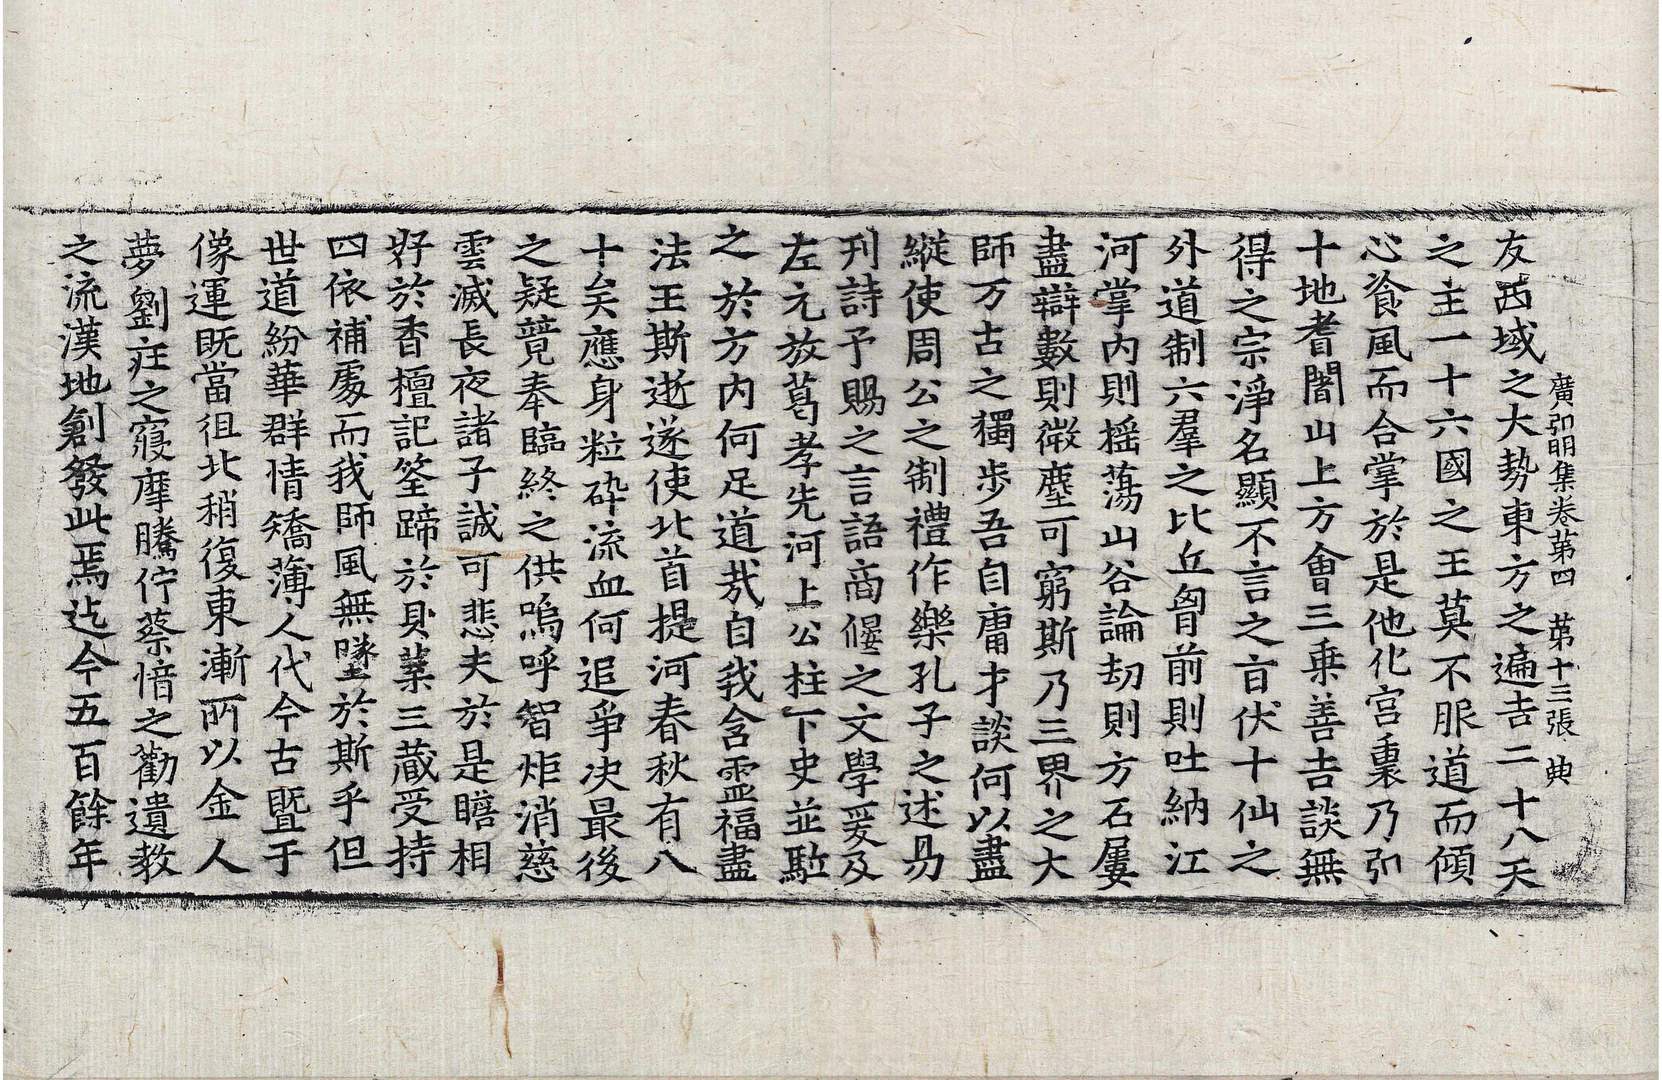 廣弘明集卷第四 第十三張 典
友西域之大勢東方之遍吉二十八天
之主一十六國之王莫不服道而傾
心飡風而合掌於是他化宮裏乃弘
十地耆闍山上方會三乗善吉談無
得之宗淨名顯不言之旨伏十仙之
外道制六羣之比丘胷前則吐納江
河掌内則揺蕩山谷論劫則方石屢
盡辯數則微塵可窮斯乃三界之大
師万古之獨步吾自庸才談何以盡
縱使周公之制禮作樂孔子之述易
刊詩予賜之言語商偃之文學爰及
左元放葛孝先河上公柱下史並驅
之於方内何足道㢤自我含靈福盡
法王斯逝遂使北首提河春秋有八
十矣應身粒碎流血何追爭决最後
之疑競奉臨終之供嗚呼智炬消慈
雲滅長夜諸子誠可悲夫於是瞻相
好於香檀記筌蹄於貝葉三藏受持
四依補處而我師風無墜於斯乎但
世道紛華群情矯薄人代今古曁于
像運既當徂北稍復東漸所以金人
夢劉莊之寢摩騰佇蔡愔之勸遺教
之流漢地創發此焉迄今五百餘年